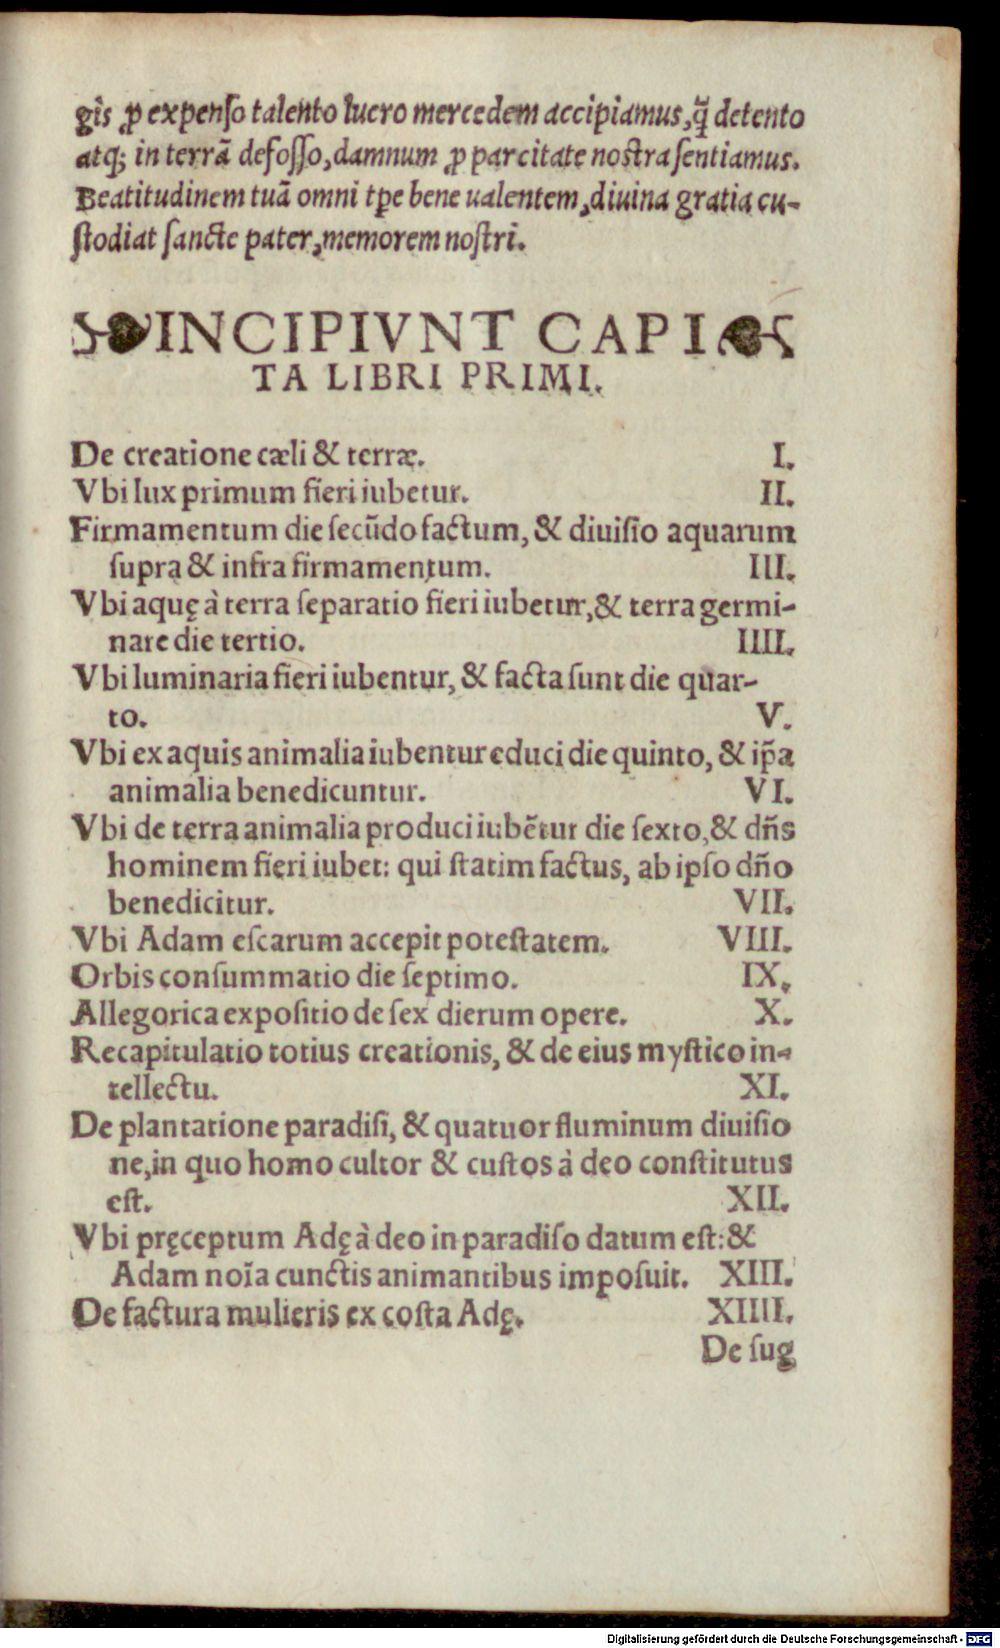 gis ꝓ expenſo talento lucro mercedem accipiamus, q̃ detento
atq; in terrã defoſſo, damnum ꝓ parcitate noſtra ſentiamus.
Beatitudinem tuã omni tꝑe bene ualentem, diuina gratia cu-
ſtodiat ſancte pater, memorem noſtri.
INCIPIVNT CAPI
TA LIBRI PRIMI.
De creatione cæli & terræ. I.
Vbi lux primum fieri iubetur. II.
Firmamentum die ſecũdo factum, & diuiſio aquarum
ſupra & infra firmamentum. III.
Vbi aquę à terra ſeparatio fieri iubetur, & terra germi-
nare die tertio. IIII.
Vbi luminaria fieri iubentur, & facta ſunt die quar-
to. V.
Vbi ex aquis animalia iubentur educi die quinto, & ip̃a
animalia benedicuntur. VI.
Vbi de terra animalia produci iubẽtur die ſexto, & dñs
hominem fieri iubet: qui ſtatim factus, ab ipſo dño
benedicitur. VII.
Vbi Adam eſcarum accepit poteſtatem. VIII.
Orbis conſummatio die ſeptimo. IX.
Allegorica expoſitio de ſex dierum opere. X.
Recapitulatio totius creationis, & de eius myſtico in-
tellectu. XI.
De plantatione paradiſi, & quatuor fluminum diuiſio
ne, in quo homo cultor & cuſtos à deo conſtitutus
eſt. XII.
Vbi pręceptum Adę à deo in paradiſo datum eſt: &
Adam noĩa cunctis animantibus impoſuit. XIII.
De factura mulieris ex coſta Adę. XIIII.
De ſug
Digitalisierung gefördert durch die Deutsche Forschungsgemeinschaft - DFG